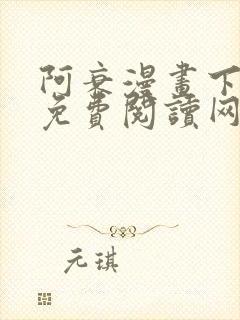 阿衰漫畫下
免費閱讀网
元琪